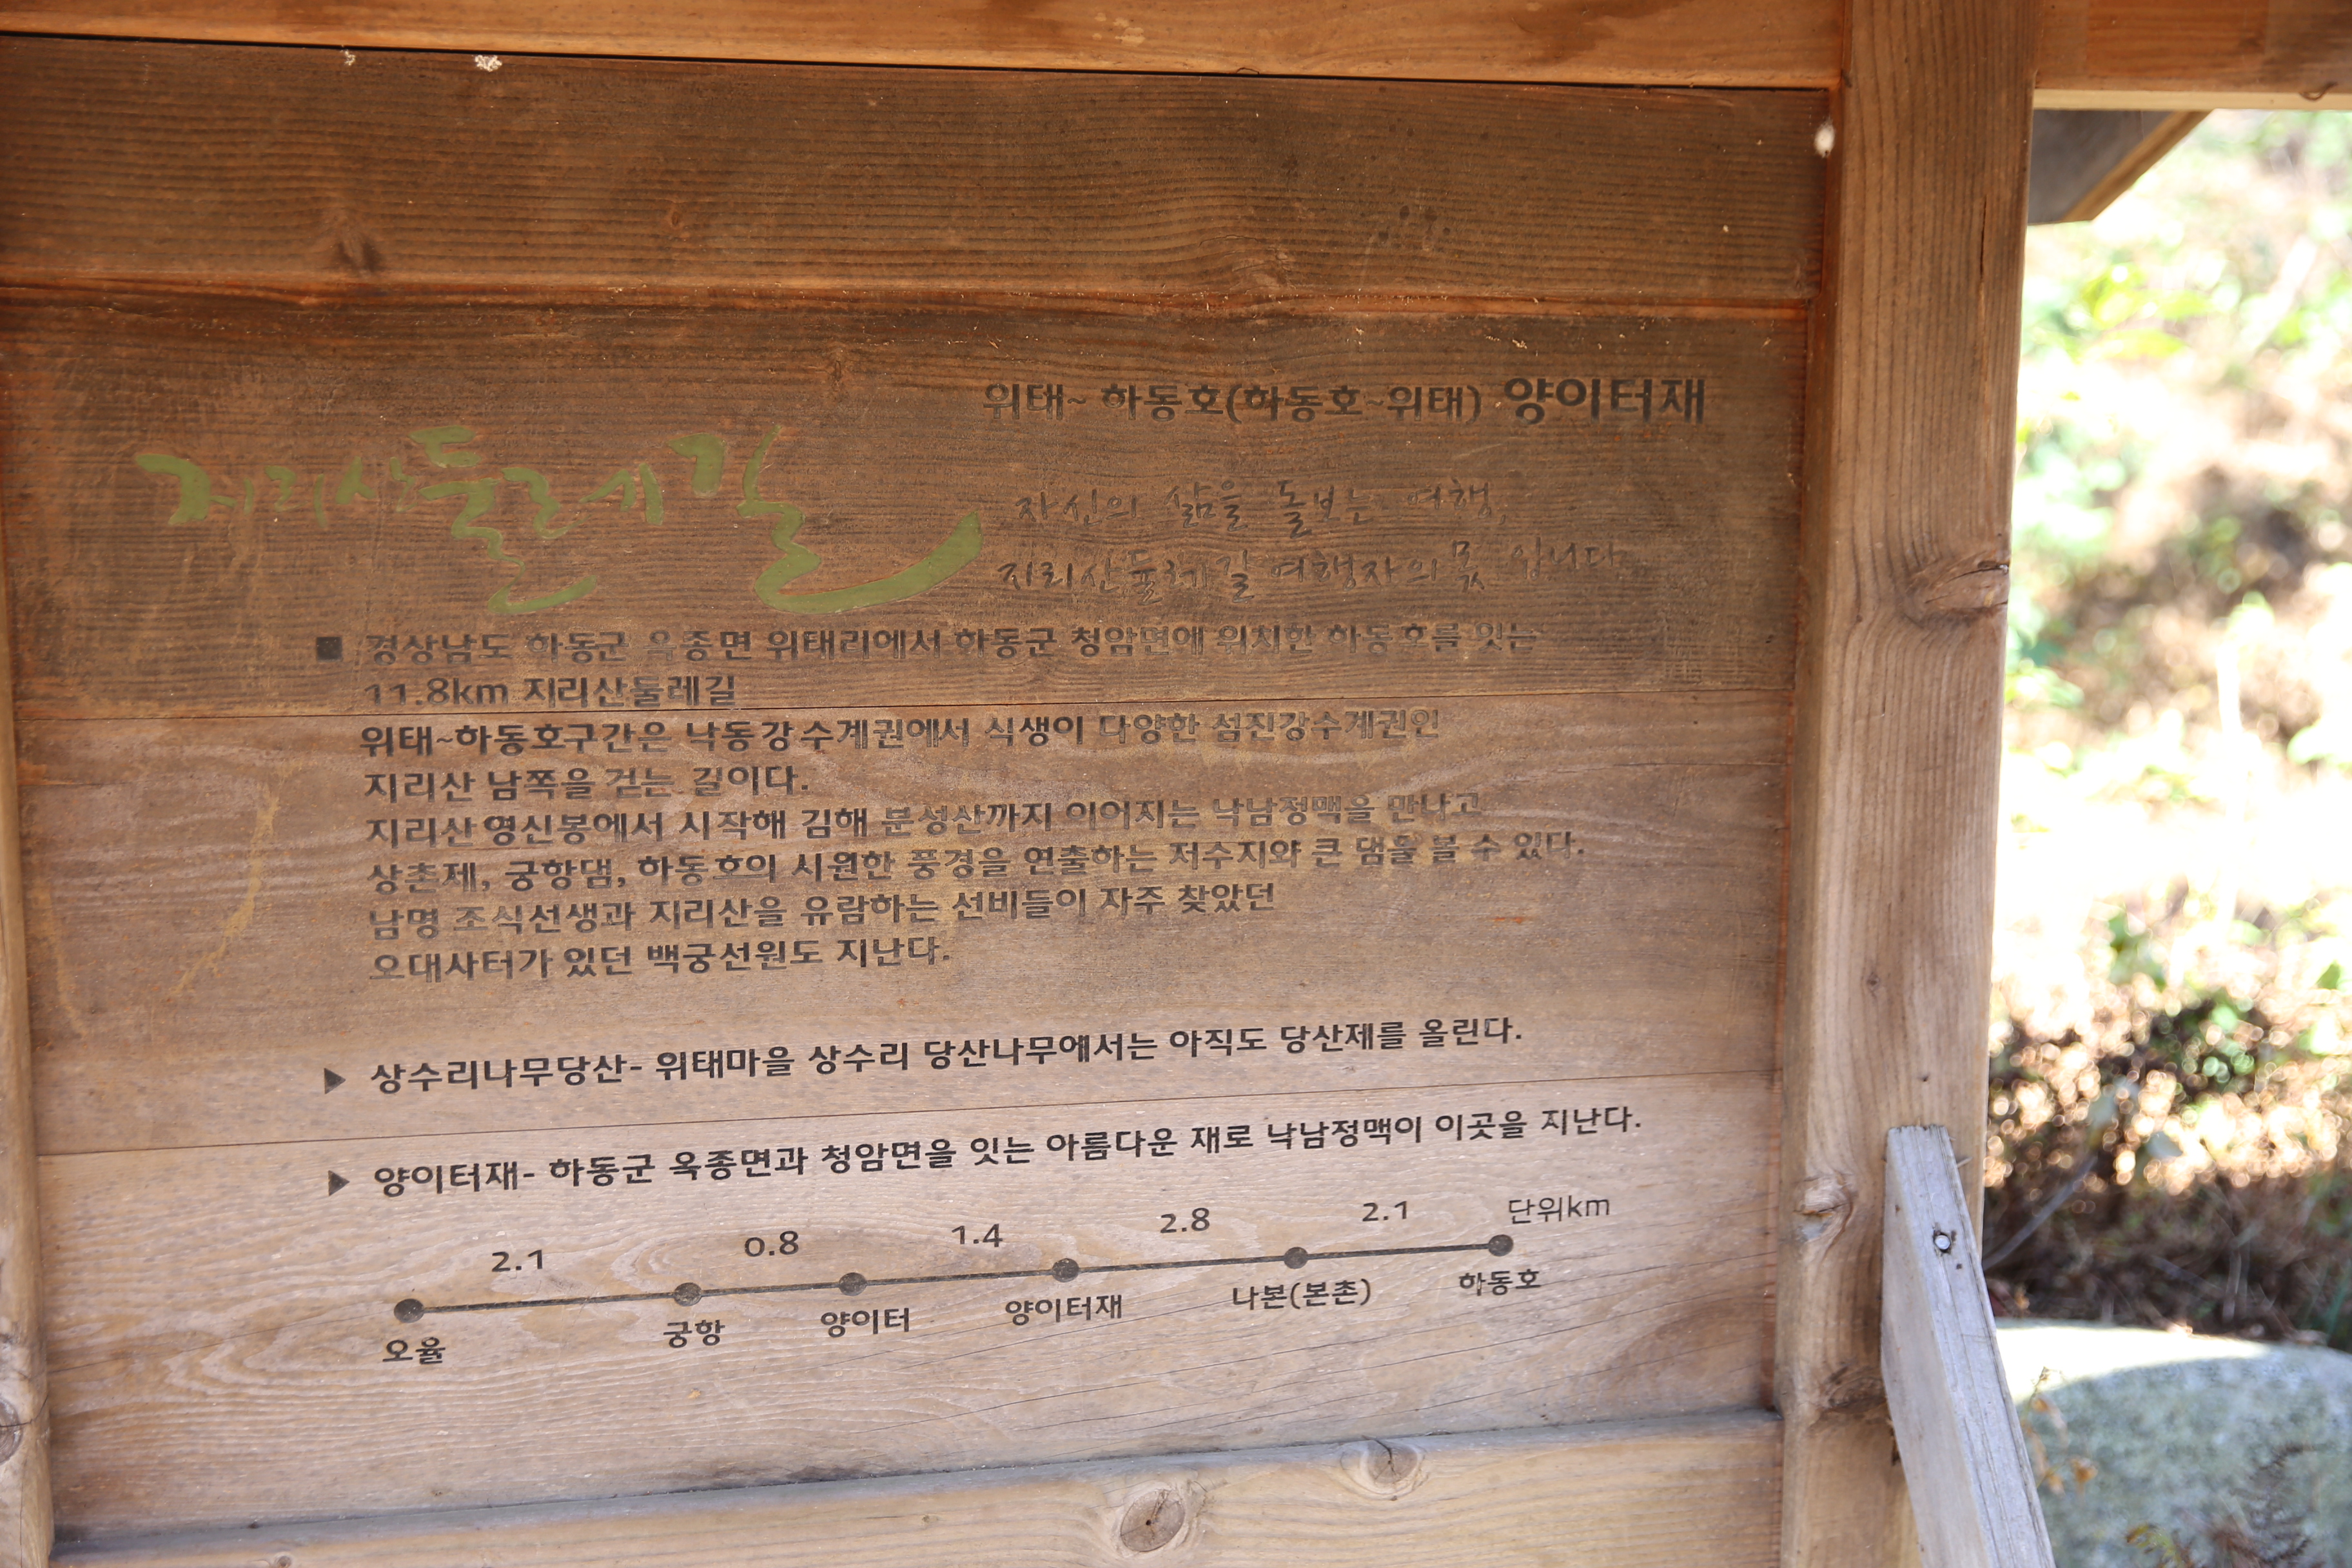 위태~ 하동호(하동호~위태) 양이터재
지리산둘레길
자신의 삶을 돌보는 여행,
지리산둘레길 여행자의 몫 입니다.
■ 경상남도 하동군 옥종면 위태리에서 하동군 청암면에 위치한 하동호를 잇는
11.8km 지리산둘레길
위태~하동호구간은 낙동강수계권에서 식생이 다양한 섬진강수계권인
지리산 남쪽을 걷는 길이다.
지리산 영신봉에서 시작해 김해 분성산까지 이어지는 낙남정맥을 만나고
상촌제, 궁항댐, 하동호의 시원한 풍경을 연출하는 저수지와 큰 댐을 볼 수 있다.
남명 조식선생과 지리산을 유람하는 선비들이 자주 찾았던
오대사터가 있던 백궁선원도 지난다.
▶ 상수리나무당산- 위태마을 상수리 당산나무에서는 아직도 당산제를 올린다.
▶ 양이터재- 하동군 옥종면과 청암면을 잇는 아름다운 재로 낙남정맥이 이곳을 지난다.
2.1 0.8 1.4 2.8 2.1 단위km
오율 궁항 양이터 양이터재 나본(본촌) 하동호